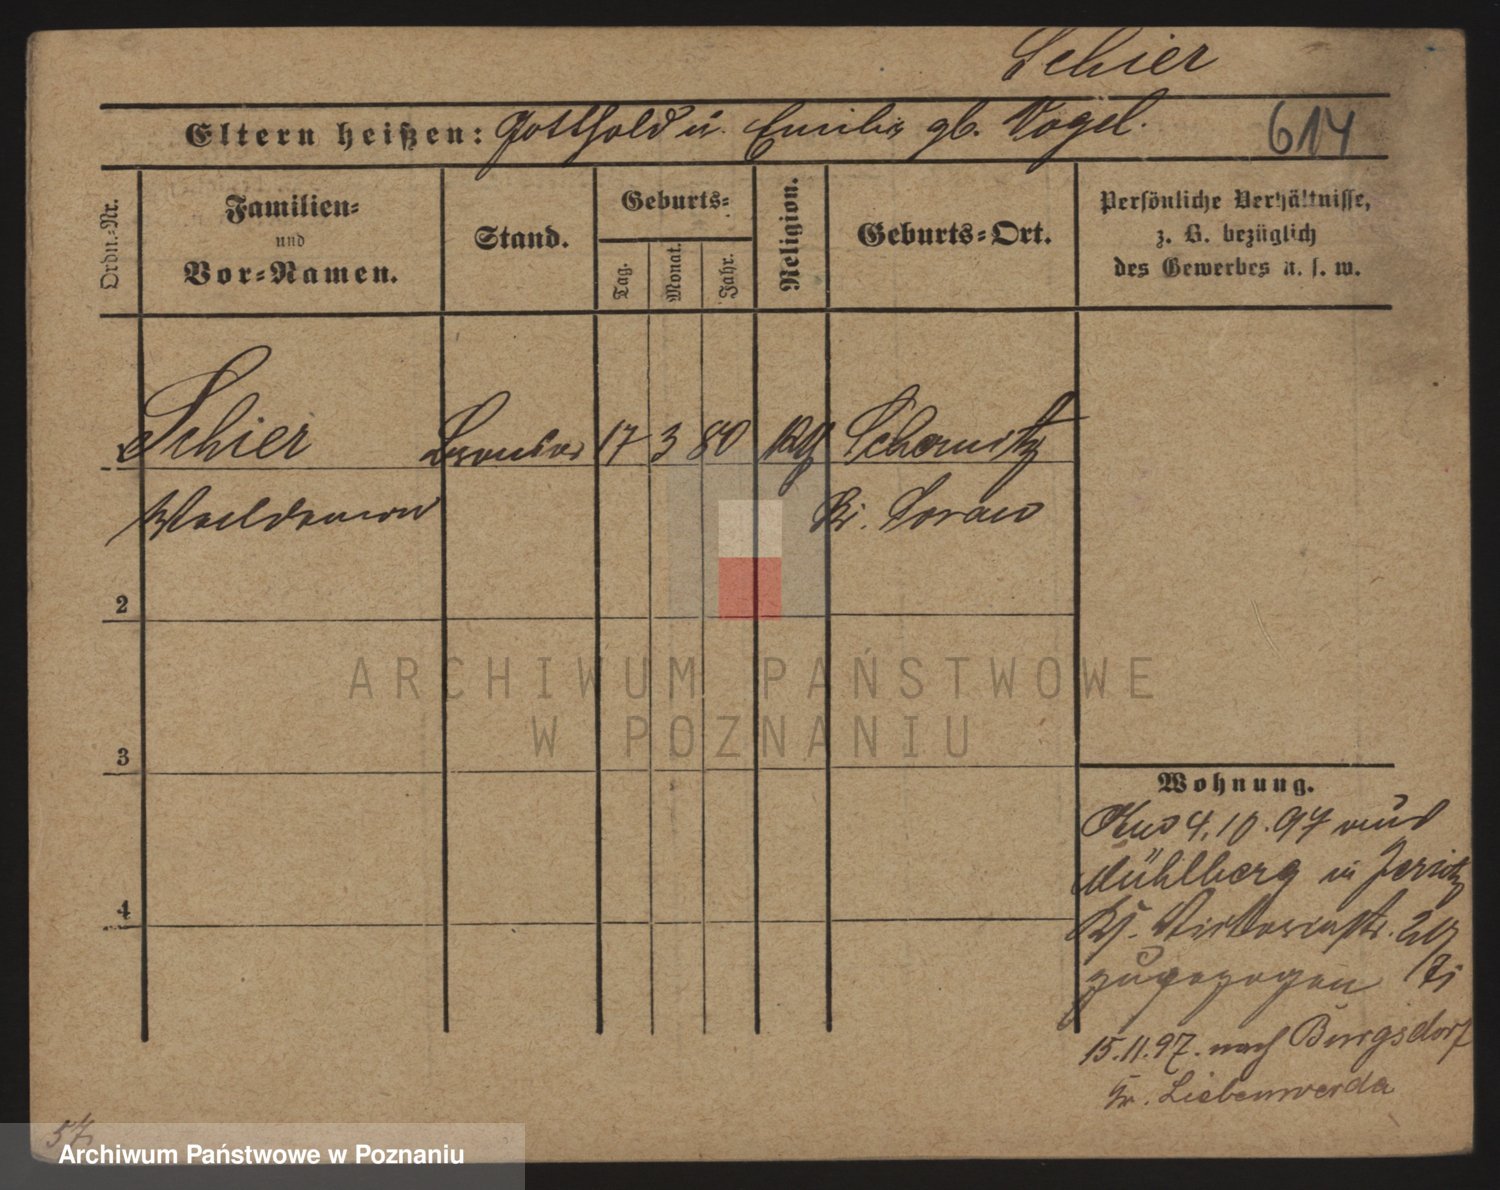 Schier
Eltern heißen: Gotthold u. Emilie gb. Vogel.
614
Ordn.-Nr.
Familien-
und
Vor-Namen.
Stand.
Geburts-
Tag.
Monat.
Jahr.
Religion.
Geburts-Ort.
Persönliche Verhältnisse,
z. B. bezüglich
des Gewerbes u. s. w.
Schier 17 3 80
Waldemar Kr. Sorau
2
3
4
Wohnung.
4.10.97 aus
Mühlberg in Jersitz
zugezogen
15.11.97. nach Burgsdorf
Kr. Liebenwerda
57
ARCHIWUM PAŃSTWOWE
W POZNANIU
Archiwum Państwowe w Poznaniu